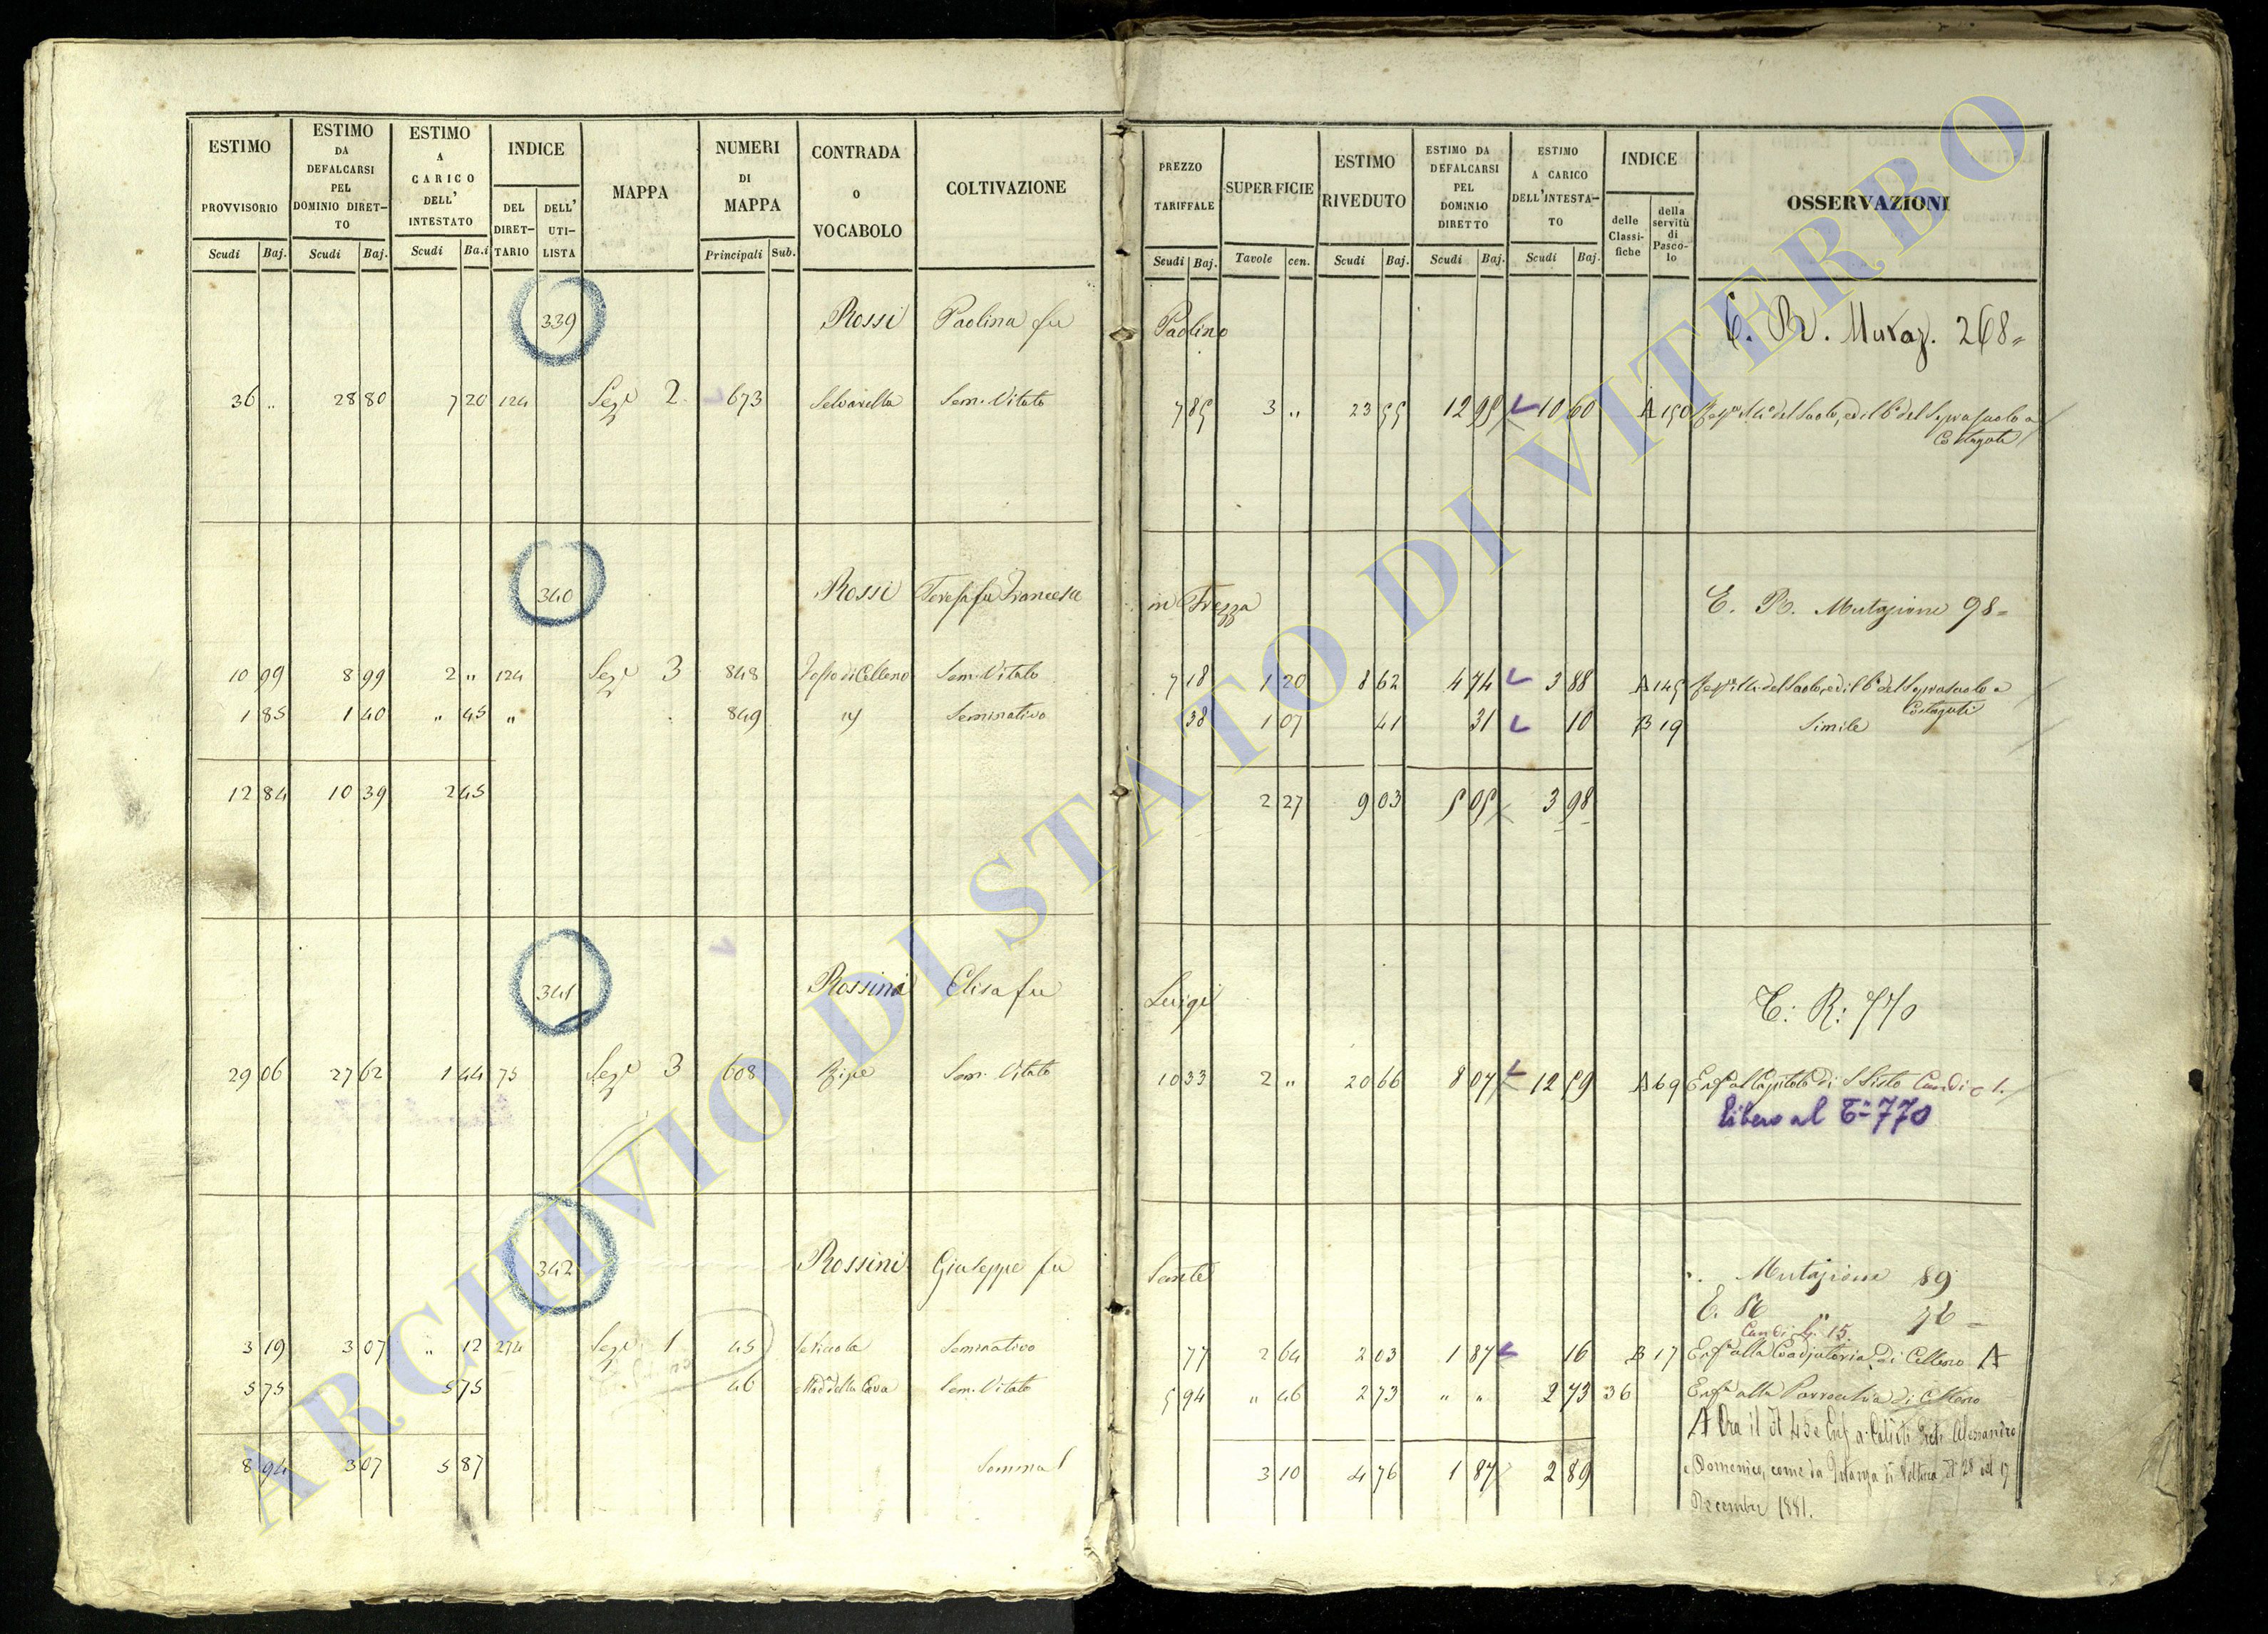 ESTIMO PROVVISORIO Scudi Baj.
ESTIMO DA DEFALCARSI PEL DOMINIO DIRET- TO Scudi Baj.
ESTIMO A CARICO DELL' INTESTATO Scudi Ba.i
INDICE DEL DIRET- TARIO DELL' UTI- LISTA
MAPPA
NUMERI DI MAPPA Principali Sub.
CONTRADA o VOCABOLO
COLTIVAZIONE
PREZZO TARIFFALE Scudi Baj.
SUPERFICIE Tavole cen.
ESTIMO RIVEDUTO Scudi Baj.
ESTIMO DA DEFALCARSI PEL DOMINIO DIRETTO Scudi Baj.
ESTIMO A CARICO DELL'INTESTA- TO Scudi Baj.
INDICE delle Classi- fiche della servitù di Pasco- lo
OSSERVAZIONI
339 Rossi Paolina fu Paolino 268
36 „ 28 80 7 20 124 Sez.e 2 673 Selvarella Sem. Vitato 7 85 3 „ 23 55 12 95 10 60 A 150
340 Rossi Teresa fu Francesco in Frezza E. R. Mutazione 98
10 99 8 99 2 „ 124 Sez.e 3 848 Fosso di Celleno Sem. Vitato 7 18 1 20 8 62 4 74 3 88 A 145
1 85 1 40 „ 45 „ 849 Seminativo 38 1 07 41 31 10 B 19 Simile
12 84 10 39 2 45 2 27 9 03 5 05 3 98
341 Rossini Elisa fu Luigi E: R: 770
29 06 27 62 1 44 75 Sez.e 3 608 Ripe Sem. Vitato 10 33 2 „ 20 66 8 07 12 59 A 69 Enf.a al Capitolo di S Sisto
Libero al 770
342 Rossini Giuseppe fu Sante Mutazione 89
3 19 3 07 „ 12 274 Sez.e 1 45 Seminativo 77 2 64 2 03 1 87 16 B 17 Enf.a alla Coadjutoria di Celleno A
5 75 5 75 46 Mad.a della Cava Sem. Vitato 5 94 „ 46 2 73 „ „ 2 73 36 Enf.a alla Parrocchia di Celleno
A Ora il N 45 e Enf. a Alessandro
8 94 3 07 5 87 Somma 3 10 4 76 1 87 2 89 e Domenico, come da
Decembre 1881.
ARCHIVIO DI STATO DI VITERBO